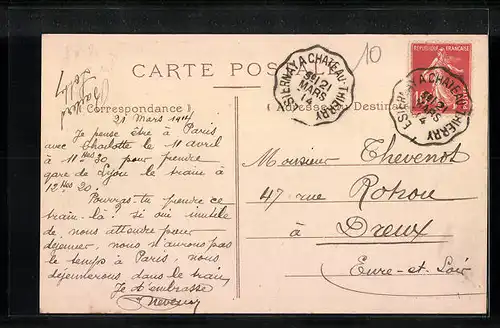 CARTE POSTALE
ESTERNAY A CHATEAU-THIERRY
21
MARS
14
10
REPUBLIQUE FRANÇAISE
ESTERNAY A CHATEAU-THIERRY
21
Correspondance
Adresse du Destinataire
21 Mars 1914
Je pense être à Paris
avec Charlotte le 11 avril
à 11 Hes 30 pour prendre
gare de Lyon le train à
12 Hes 20.
Pourras-tu prendre ce
train-là ? si oui inutile
de nous attendre pour
déjeuner, nous n'aurons pas
le temps à Paris, nous
déjeunerons dans le train
Je t'embrasse
Thevenot
Monsieur Thevenot
47 rue Rotrou
à Dreux
Eure-et-Loir